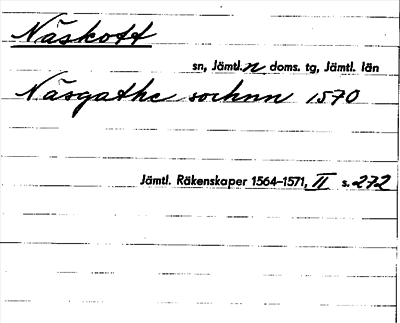 Näskott
sn, Jämtl. n doms. tg, Jämtl. län
Näsgathe sochnn 1570
Jämtl. Räkenskaper 1564–1571, II s. 272